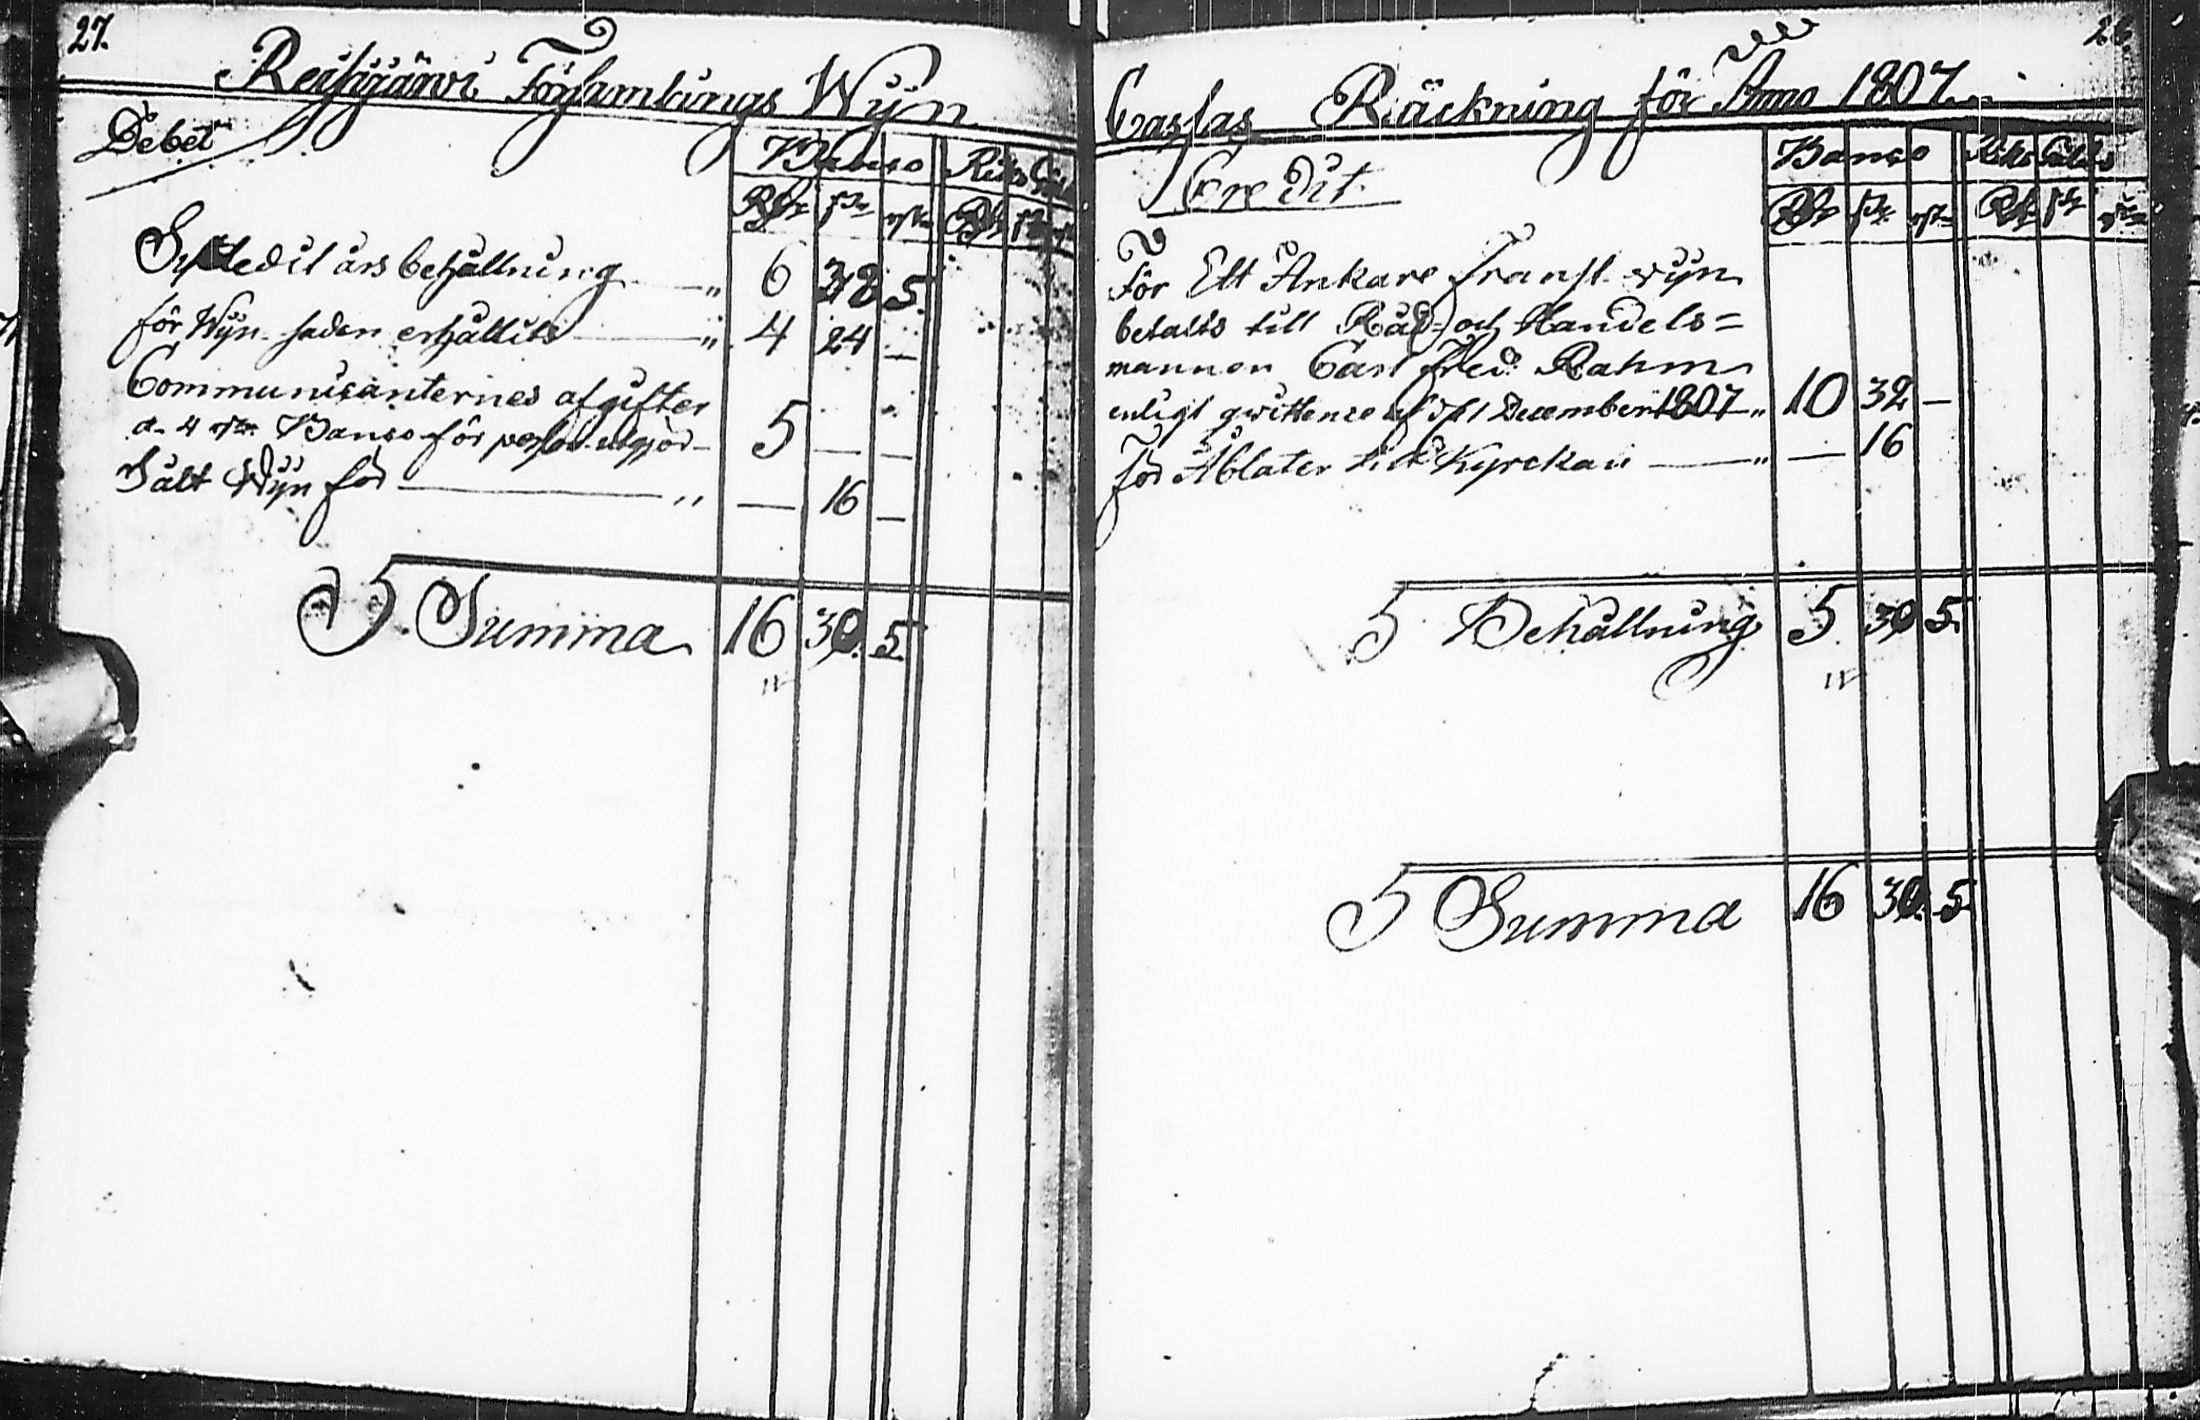 27.
Reisjärvi Församlings Wijn
Debet
Banco Riks Gäld
Rdr sk rst Rdr sk rst
års behållning " 6 38 5.
för Wijn saden erhållits " 4 24 —
Communicanternes afgifter
a 4 rst. Banco för person utgjör 5 — —
Sålt Wijn för " — 16 —
Summa 16 30. 5.
Cassas Räckning för Anno 1807.
Credit.
Banco Riks Gälds
Rdr sk rst Rdr sk rst
För Ett Ankare Fransk wijn
betalts till Råd- och Handels=
mannen Carl Fred: Rahm
enligt qwittence af d 1 December 1807 " 10 32 —
För Åblater till Kyrckan " — 16
Behållning 5 30 5.
Summa 16 30. 5.